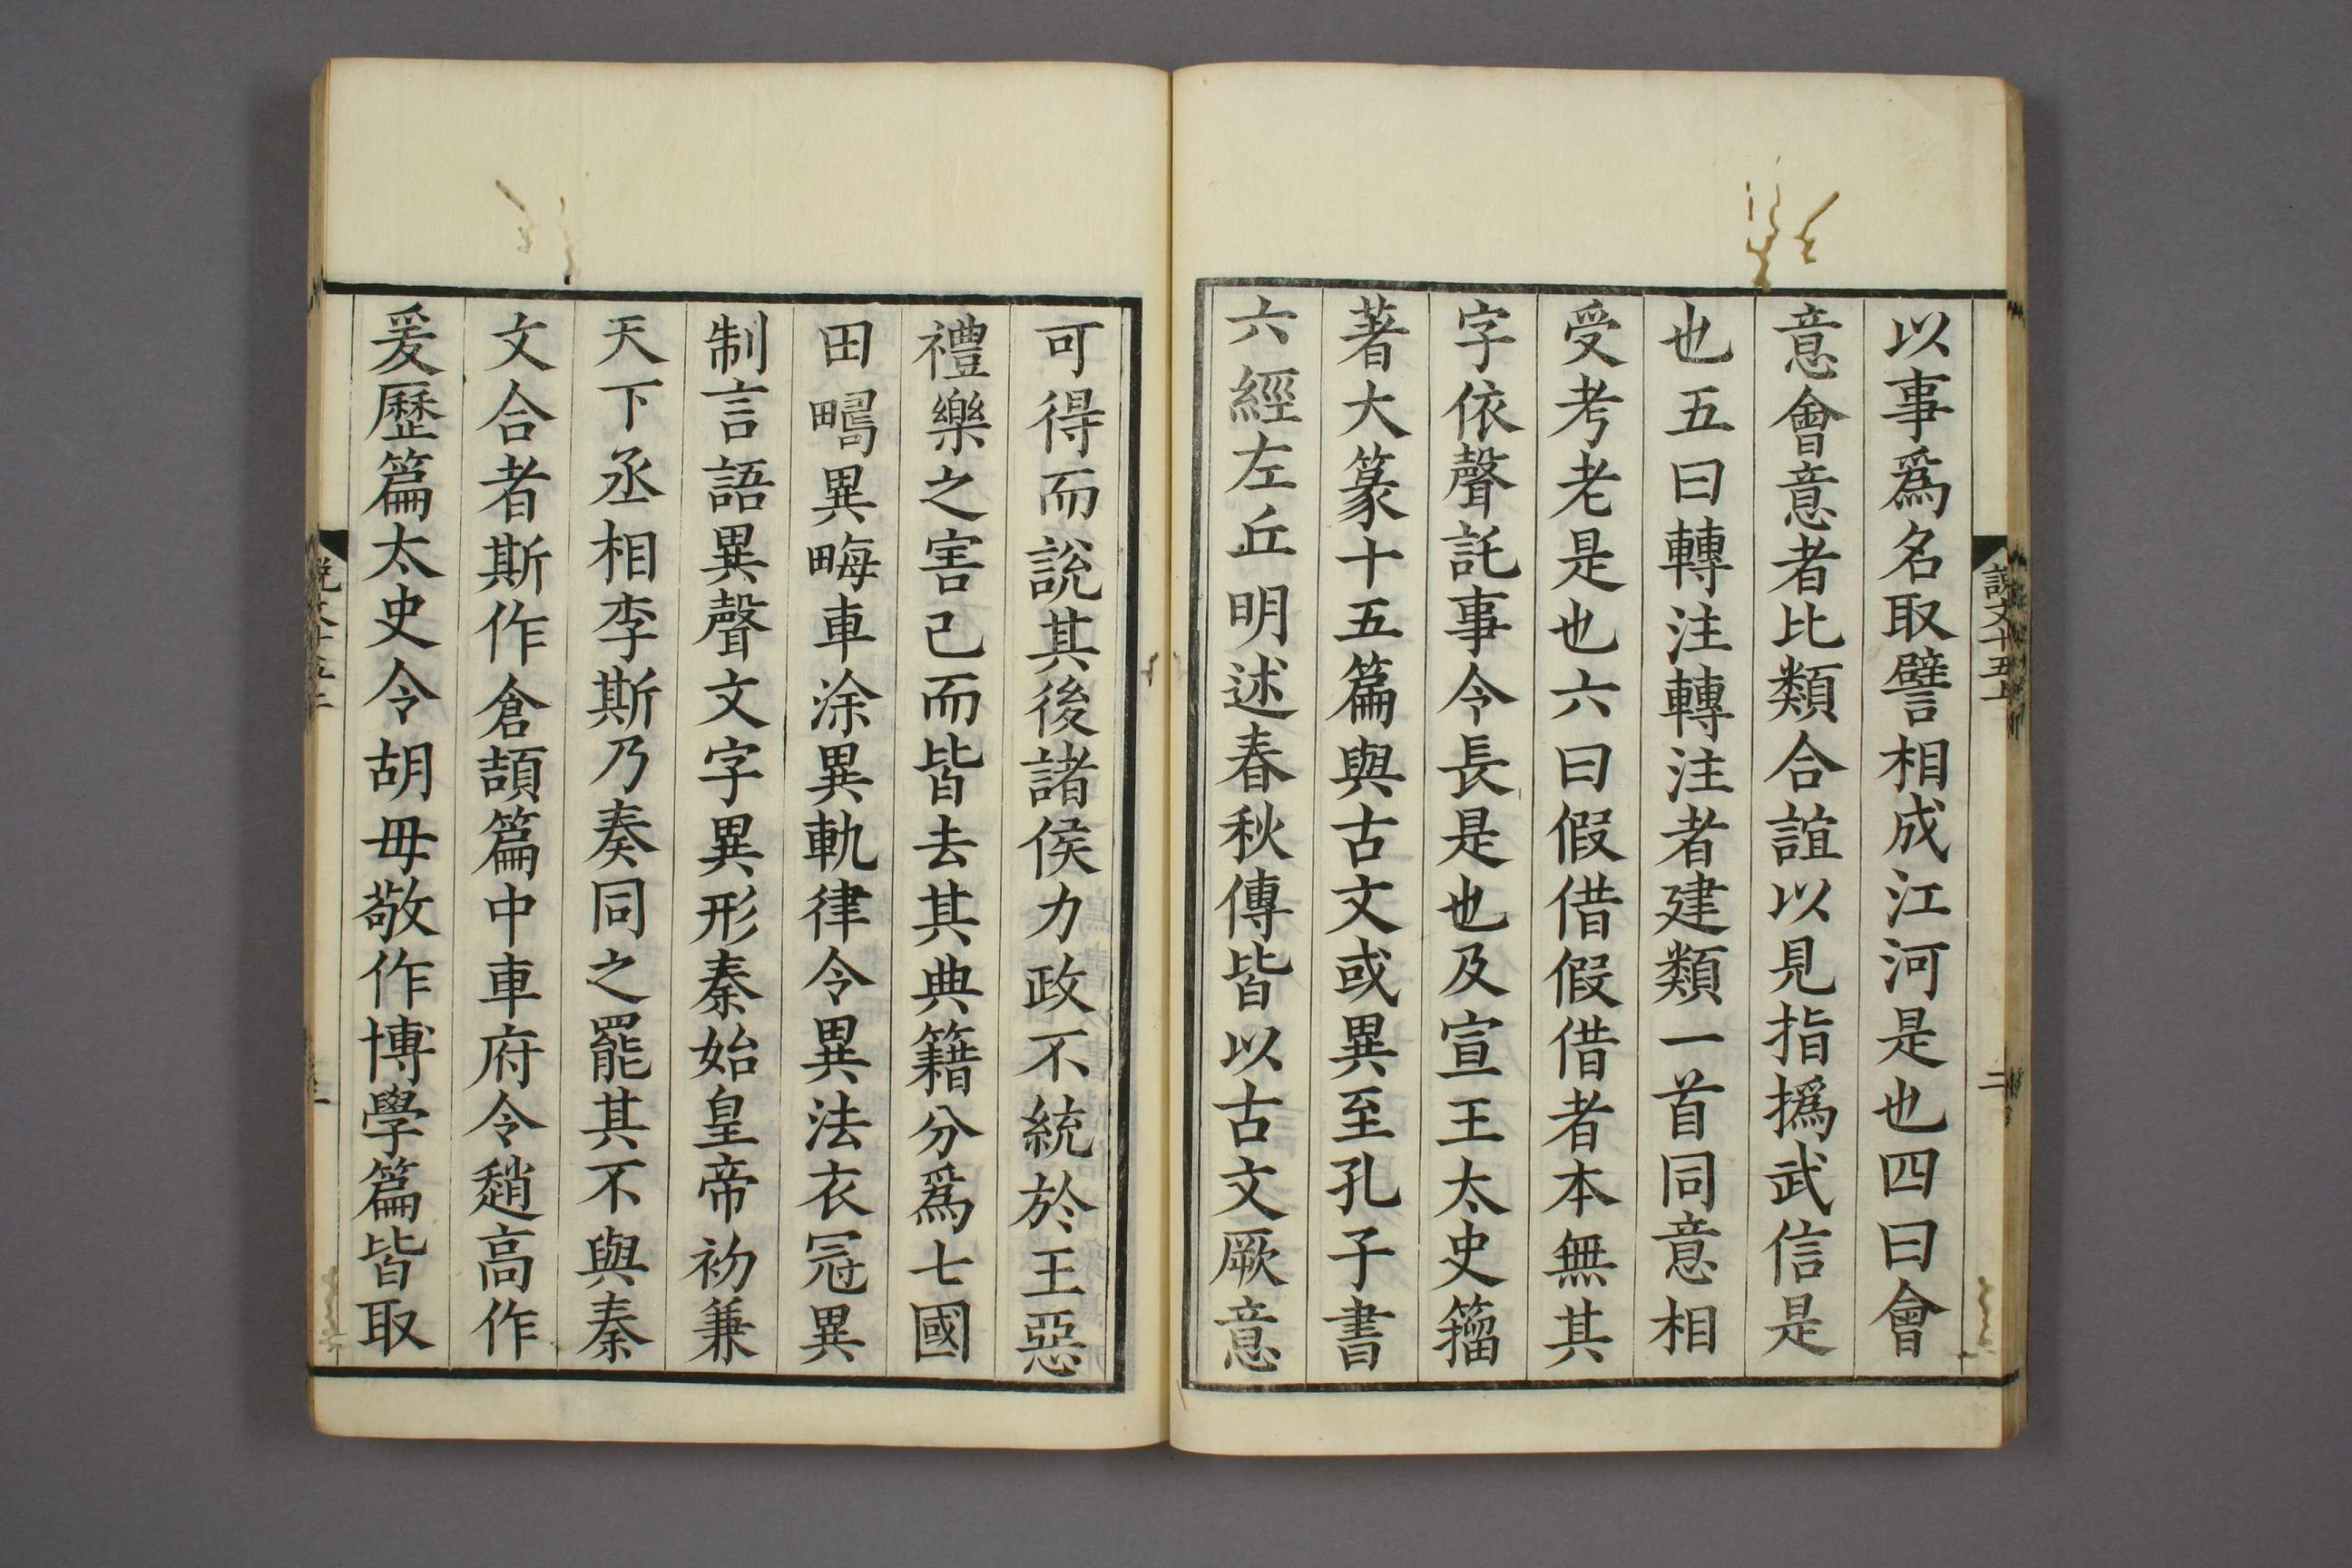 以事爲名取譬相成江河是也四曰會
意會意者比類合誼以見指撝武信是
也五曰轉注轉注者建類一首同意相
受考老是也六曰假借假借者本無其
字依聲託事令長是也及宣王太史籀
著大篆十五篇與古文或異至孔子書
六經左丘明述春秋傳皆以古文厥意
可得而說其後諸侯力政不統於王惡
禮樂之害己而皆去其典籍分爲七國
田疇異畮車涂異軌律令異法衣冠異
制言語異聲文字異形秦始皇帝初兼
天下丞相李斯乃奏同之罷其不與秦
文合者斯作倉頡篇中車府令趙高作
爰歷篇太史令胡毋敬作博學篇皆取
說文十五上
二